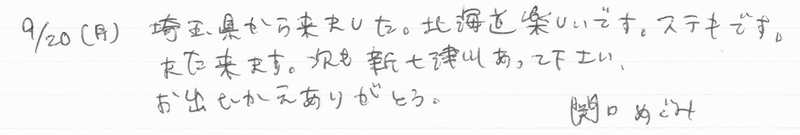 9/20(月) 埼玉県から来ました。北海道楽しいです。ステキです。
また来ます。次も新十津川あって下さい、
お出むかえありがとう。
関口 めぐみ